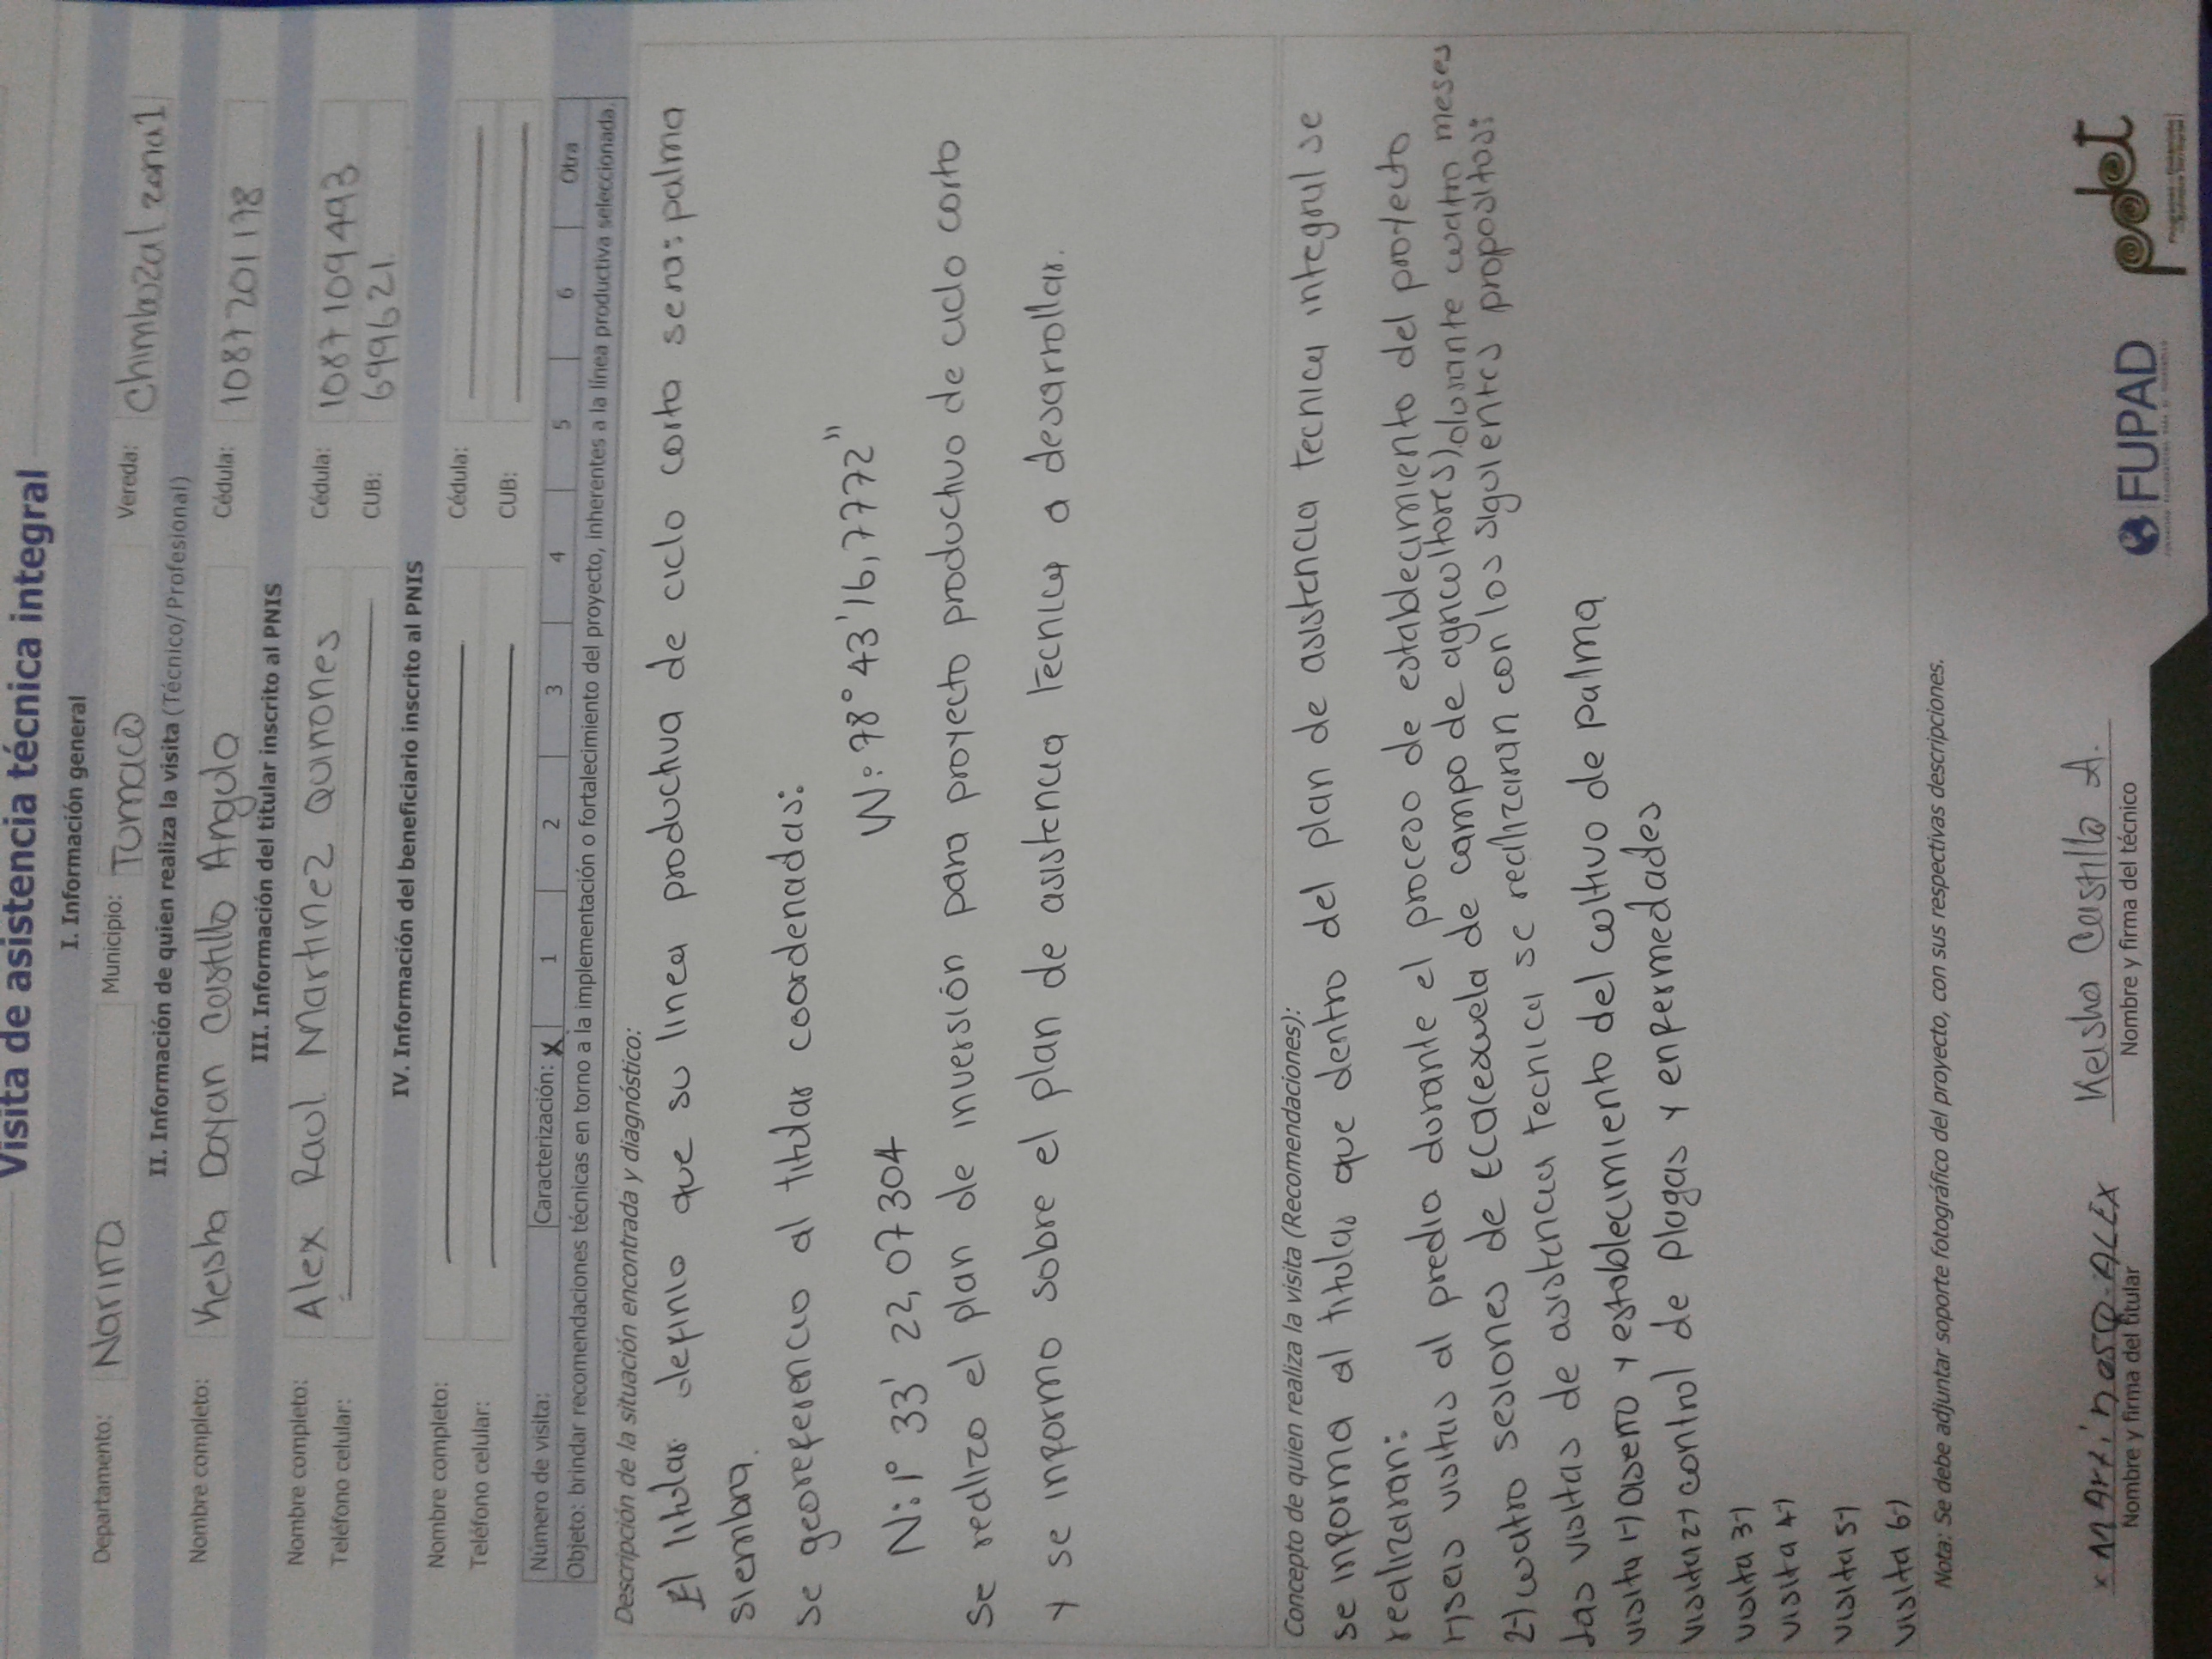 Visita de asistencia técnica integral
I. Información general
Departamento: Nariño Municipio: Tumaco Vereda: Chimbozal zona 1
II. Información de quien realiza la visita (Técnico/Profesional)
Nombre completo: Keisha Dayan Castillo Angulo Cédula: 1087201178
III. Información del titular inscrito al PNIS
Nombre completo: Alex Raul Martinez Quinones Cédula: 1087109493
Teléfono celular: CUB: 699621
IV. Información del beneficiario inscrito al PNIS
Nombre completo: Cédula:
Teléfono celular: CUB:
Número de visita: Caracterización: X 1 2 3 4 5 6 Otra
Objeto: brindar recomendaciones técnicas en torno a la implementación o fortalecimiento del proyecto, inherentes a la línea productiva seleccionada.
Descripción de la situación encontrada y diagnóstico:
El titular definio que su linea productiva de ciclo corto sera: palma
siembra.
se georeferencio al titular coordenadas:
N: 1° 33' 22,07304 W: 78° 43' 16,7772"
se realizo el plan de inversión para proyecto productivo de ciclo corto
y se informo sobre el plan de asistencia tecnica a desarrollar.
Concepto de quien realiza la visita (Recomendaciones):
se informa al titular que dentro del plan de asistencia tecnica integral se
realizaran:
1-) seis visitas al predio durante el proceso de establecimiento del proyecto
2-) cuatro sesiones de ECA (escuela de campo de agricultores) durante cuatro meses
las visitas de asistencia tecnica se realizaran con los siguientes propositos:
visita 1-) Diseño y establecimiento del cultivo de palma
visita 2-) control de plagas y enfermedades
visita 3-)
visita 4-)
visita 5-)
visita 6-)
Nota: Se debe adjuntar soporte fotográfico del proyecto, con sus respectivas descripciones.
Keisha Castillo A.
Nombre y firma del titular Nombre y firma del técnico
FUPAD pdet